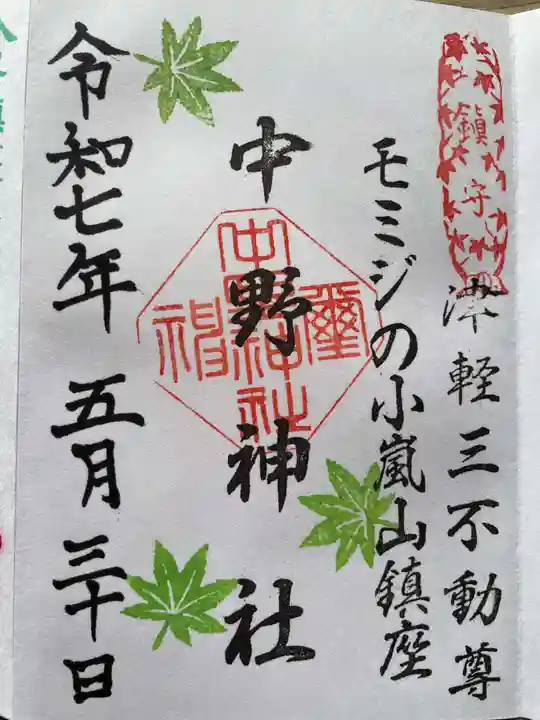 鎮守
津軽三不動尊
モミジの小嵐山鎮座
中野神社
令和七年 五月 三十日